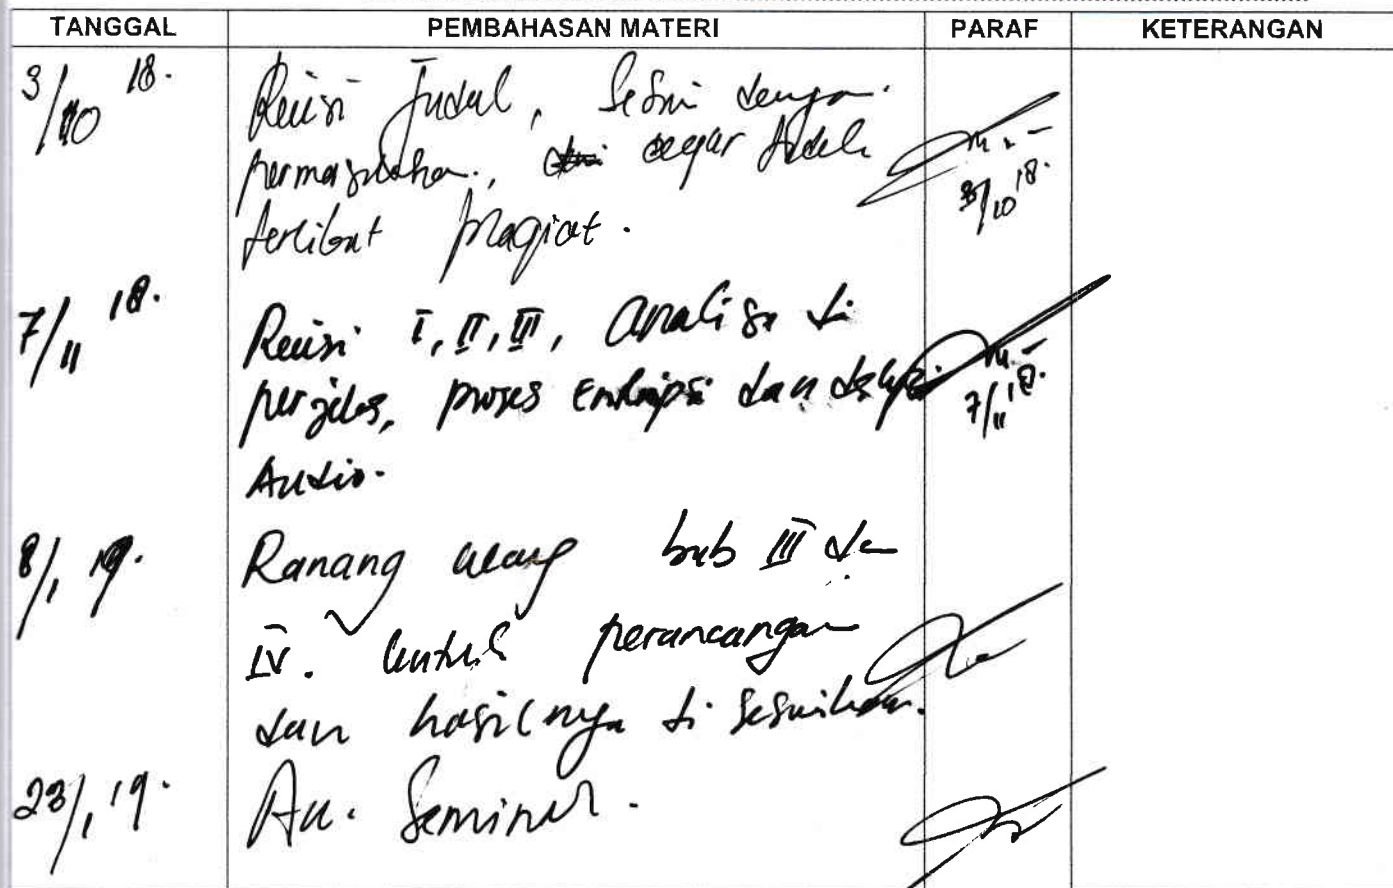 TANGGAL PEMBAHASAN MATERI PARAF KETERANGAN
3/10 18. Revisi Judul, Sesuai dengan
permasalahan., agar tidak
terlibat plagiat.
3/10 18.
7/11 18. Revisi I, II, III, analisa di
perjelas, proses Enkripsi dan dekripsi
7/11 18.
Audio.
8/1 19. Ranang ulang bab III dan
IV. untuk perancangan
dan hasilnya di sesuikan.
23/1 19. Acc. Seminar.